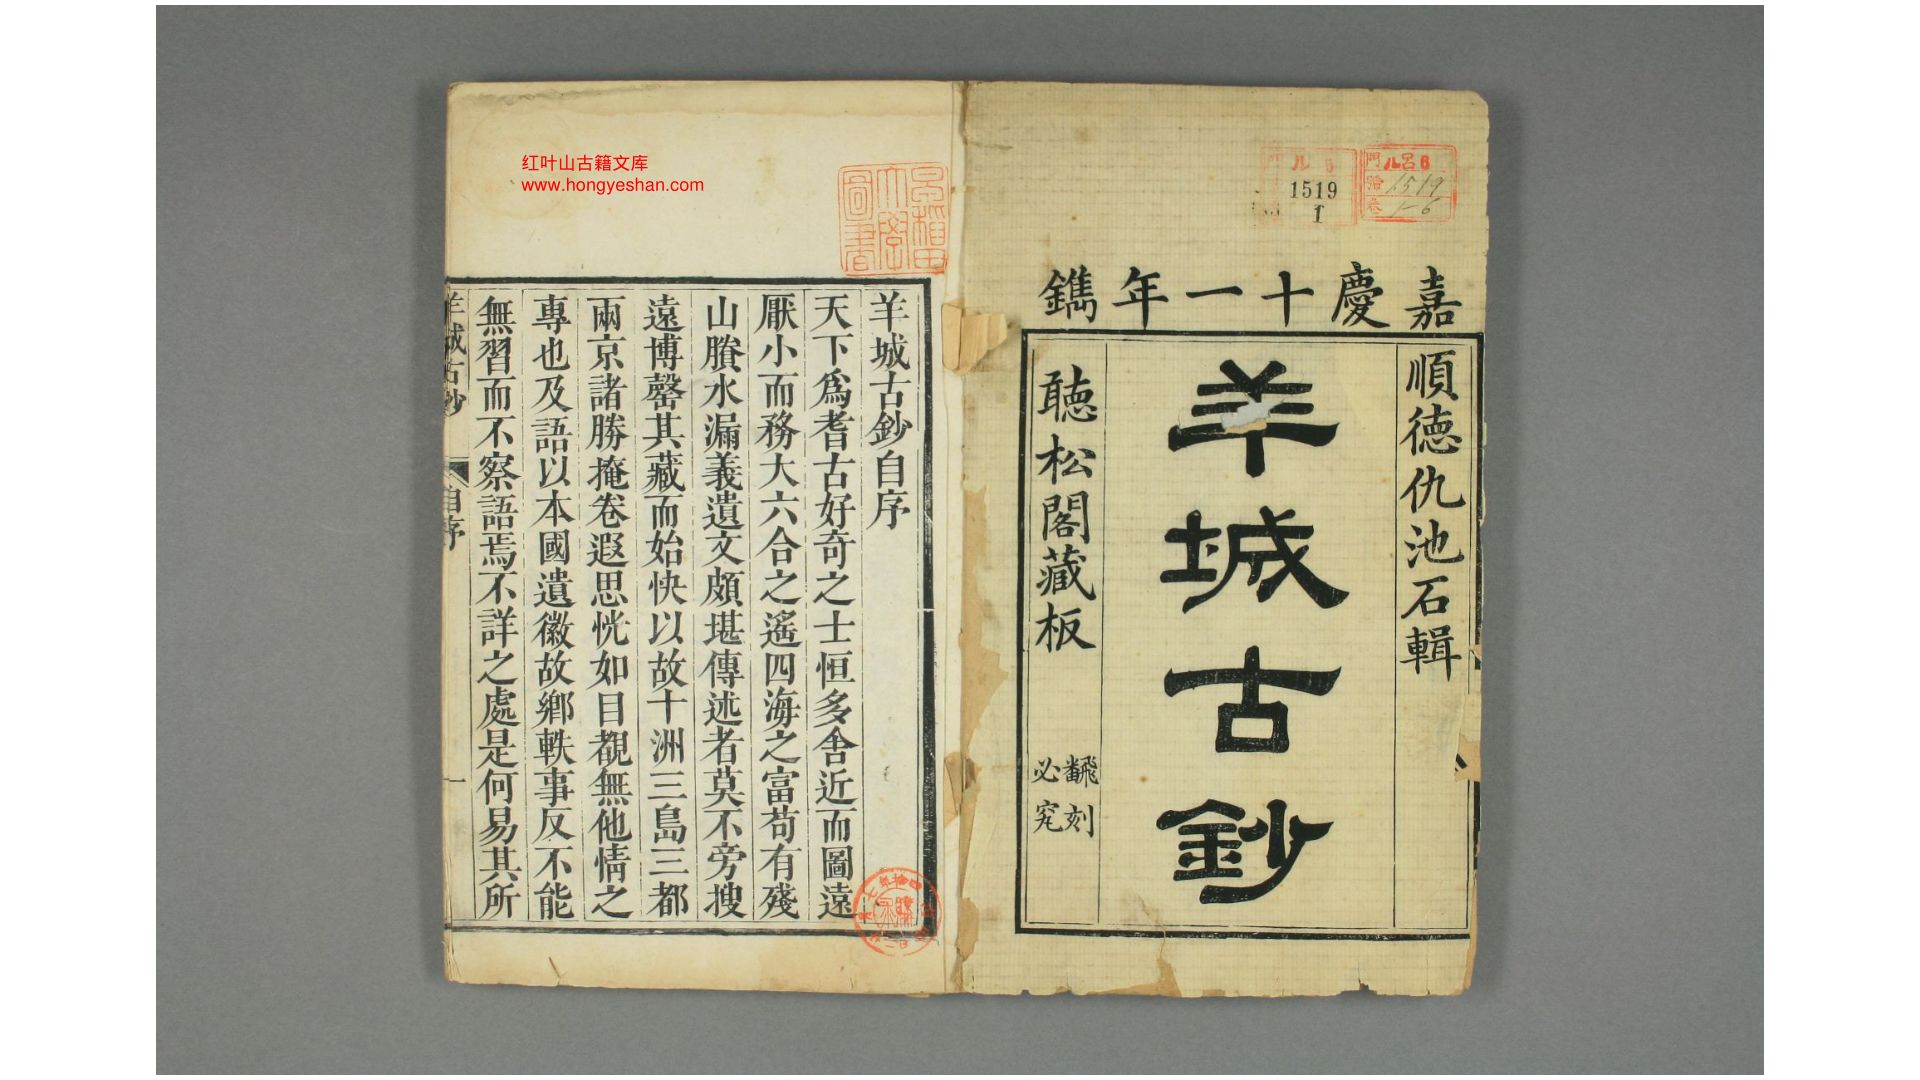 红叶山古籍文库
www.hongyeshan.com
門 ル呂6
號 1519
卷 1-6
1519
1
嘉慶十一年鐫
順德仇池石輯
羊城古鈔
聽松閣藏板
飜刻
必究
早稲田
大學
圖書
羊城古鈔自序
天下爲耆古好奇之士恒多舍近而圖遠
厭小而務大六合之遙四海之富苟有殘
山賸水漏義遺文頗堪傳述者莫不旁搜
遠博罄其藏而始快以故十洲三島三都
兩京諸勝掩卷遐思恍如目覩無他情之
專也及語以本國遺徽故鄉軼事反不能
無習而不察語焉不詳之處是何易其所
羊城古鈔
自序
一